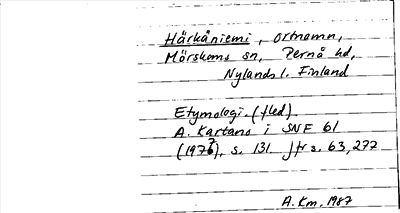 Härkäniemi, ortnamn,
Mörskoms sn, Pernå hd,
Nylands l. Finland
Etymologi. (fled).
A. Kartano i SNF 61
(1973), s. 131. Jfr s. 63, 272
A. Km. 1987